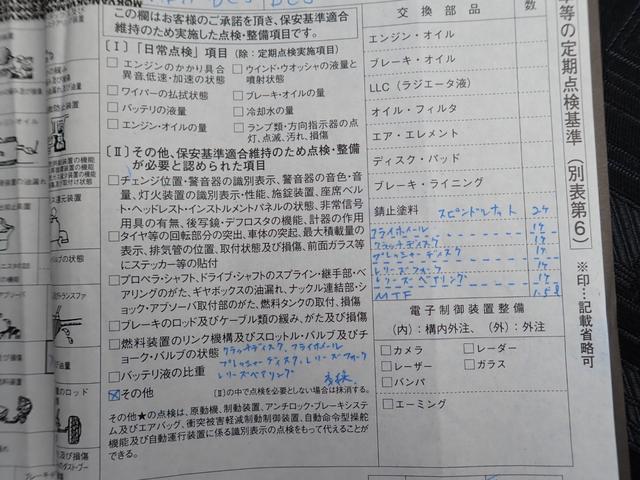 この欄はお客様のご承諾を頂き、保安基準適合
維持のため実施した点検・整備項目です。
[Ⅰ]「日常点検」項目(除:定期点検実施項目)
□エンジンのかかり具合
異音、低速・加速の状態
□ウインド・ウオッシャの液量と
噴射状態
□ワイパーの払拭状態
□ブレーキ・オイルの量
□バッテリの液量
□冷却水の量
□エンジン・オイルの量
□ランプ類・方向指示器の点
灯、点滅、汚れ、損傷
[Ⅱ]その他、保安基準適合維持のため点検・整備
が必要と認められた項目
□チェンジ位置・警音器の識別表示、警音器の音色・音
量、灯火装置の識別表示・性能、施錠装置、座席ベル
ト・ヘッドレスト・インストルメントパネルの状態、非常信号
用具の有無、後写鏡・デフロスタの機能、計器の作用
□タイヤ等の回転部分の突出、車体の突起、最大積載量の
表示、排気管の位置、取付状態及び損傷、前面ガラス等
にステッカー等の貼付
□プロペラ・シャフト、ドライブ・シャフトのスプライン・継手部・ベ
アリングのがた、ギヤボックスの油漏れ、ナックル連結部・シ
ョック・アブソーバ取付部のがた、燃料タンクの取付、損傷
□ブレーキのロッド及びケーブル類の緩み、がた及び損傷
□燃料装置のリンク機構及びスロットル・バルブ及びチ
ョーク・バルブの状態
クラッチディスク、フライホイール
プレッシャーディスク、レリーズフォーク
□バッテリ液の比重
レリーズベアリング
☒その他
[Ⅱ]の中で点検を必要としない場合は抹消する。
その他★の点検は、原動機、制動装置、アンチロック・ブレーキシステ
ム及びエアバッグ、衝突被害軽減制動制御装置、自動命令型操舵
機能及び自動運行装置に係る識別表示の点検をもって代えることが
できる。
交換部品
数
エンジン・オイル
ブレーキ・オイル
LLC(ラジエータ液)
オイル・フィルタ
エア・エレメント
ディスク・パッド
ブレーキ・ライニング
錆止塗料 スピンドルナット 2ケ
フライホイール 1ケ
クラッチディスク 1ケ
プレッシャーディスク 1ケ
レリーズフォーク 1ケ
レリーズベアリング 1ケ
MTF
電子制御装置整備
(内):構内外注、(外):外注
□カメラ □レーダー
□レーザー □ガラス
□バンパ
□エーミング
等の定期点検基準(別表第6)
※印…記載省略可